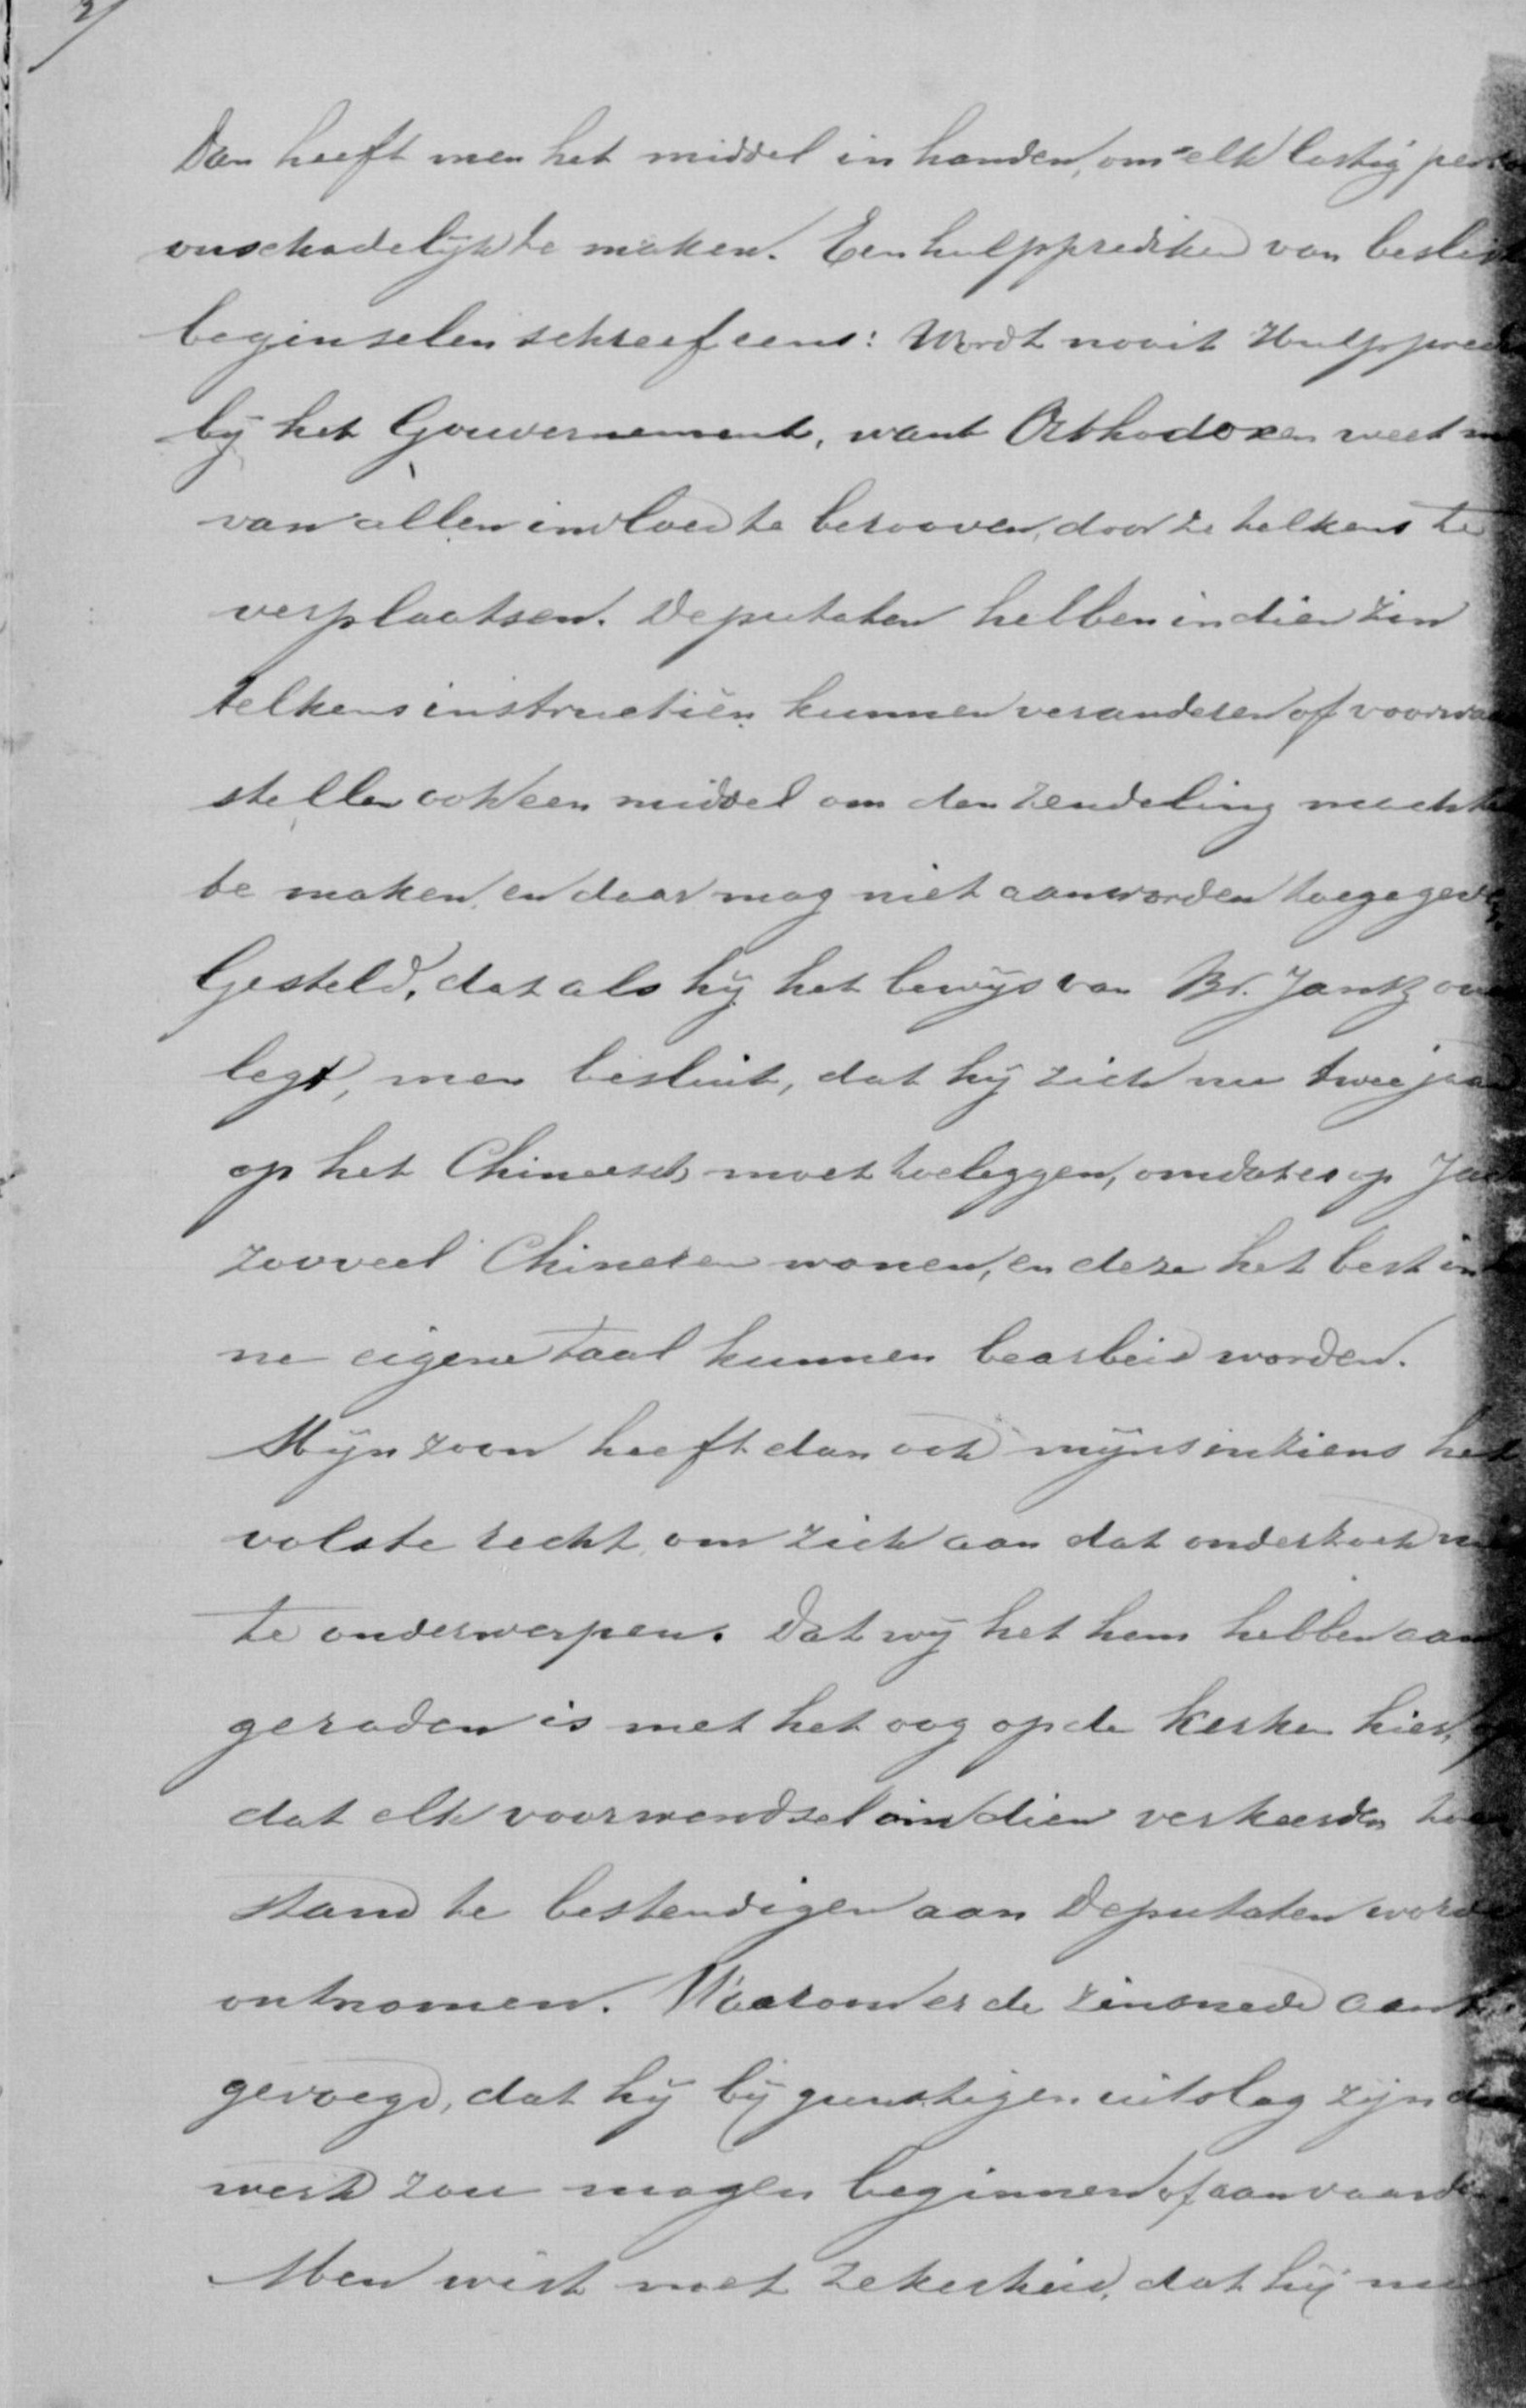 2/
Dan heeft men het middel in handen, om elk lastig perso
onschadelijk te maken. Een hulpprediker van beslist
beginselen schreef eens: Wordt nooit Hulppred
bij het Gouvernement, want Orthodoxen weet m
van allen invloed te berooven, door ze telkens te
verplaatsen. Deputaten hebben in dien zin
telkens instructiën kunnen veranderen of voorwa
stellen ook een middel om den zendeling machte
te maken, en daar mag niet aan worden toegegeven,
Gesteld, dat als hij het bewijs van Br. Jantz ove
legt, men besluit, dat hij zich nu twee jaar
op het Chineesch moet toeleggen, omdat er op Ja
zooveel Chinezen wonen, en deze het best in
ne eigene taal kunnen bearbeid worden.
Mijn zoon heeft dan ook mijns inziens het
volste recht, om zich aan dat onderzoek ni
te onderwerpen. Dat wij het hem hebben aan
geraden is met het oog op de kerken hier, op
dat elk voorwendsel om dien verkeerden toe
stand te bestendigen aan Deputaten worde
ontnomen. Waarom er de zinsnede aan
gevoegd, dat hij bij gunstigen uitslag zijn
werk zou mogen beginnen of aanvaarden.
Men wist met zekerheid, dat hij nu